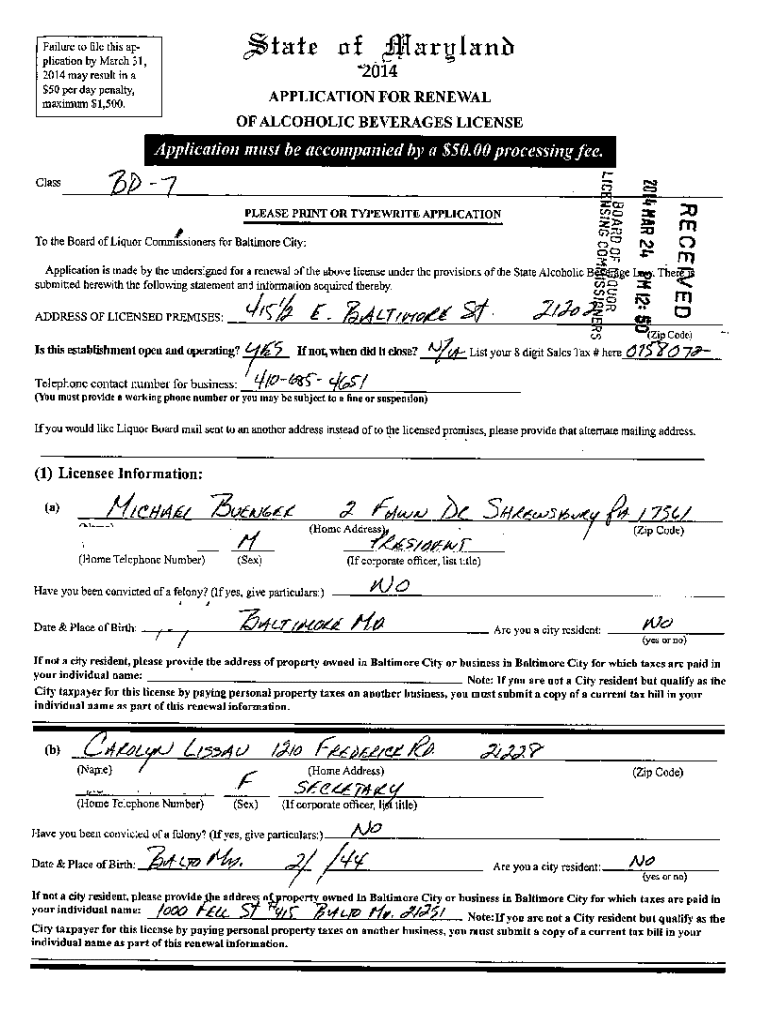 Failure to file this ap-
plication by March 31,
2014 may result in a
$50 per day penalty,
maximum $1,500.
State of Maryland
2014
APPLICATION FOR RENEWAL
OF ALCOHOLIC BEVERAGES LICENSE
Application must be accompanied by a $50.00 processing fee.
Class BD-7
RECEIVED
2014 MAR 24 PM 12: 50
BOARD OF LIQUOR
LICENSING COMMISSIONERS
PLEASE PRINT OR TYPEWRITE APPLICATION
To the Board of Liquor Commissioners for Baltimore City:
Application is made by the undersigned for a renewal of the above license under the provisions of the State Alcoholic Beverage Law. There is
submitted herewith the following statement and information acquired thereby.
ADDRESS OF LICENSED PREMISES: 415 1/2 E. BALTIMORE St. 21202
(Zip Code)
Is this establishment open and operating? YES If not, when did it close? N/A List your 8 digit Sales Tax # here 0758072-
Telephone contact number for business: 410-685-4651
(You must provide a working phone number or you may be subject to a fine or suspension)
If you would like Liquor Board mail sent to an another address instead of to the licensed premises, please provide that alternate mailing address.
(1) Licensee Information:
(a) MICHAEL BUENGER 2 FAWN DR SHREWSBURY PA 17561
(Home Address) (Zip Code)
M PRESIDENT
(Home Telephone Number) (Sex) (If corporate officer, list title)
Have you been convicted of a felony? (If yes, give particulars:) NO
Date & Place of Birth: / / BALTIMORE MD. Are you a city resident: NO
(yes or no)
If not a city resident, please provide the address of property owned in Baltimore City or business in Baltimore City for which taxes are paid in
your individual name: Note: If you are not a City resident but qualify as the
City taxpayer for this license by paying personal property taxes on another business, you must submit a copy of a current tax bill in your
individual name as part of this renewal information.
(b) CAROLYN LISSAU 1210 FREDERICK RD. 21228
(Name) (Home Address) (Zip Code)
F SECRETARY
(Home Telephone Number) (Sex) (If corporate officer, list title)
Have you been convicted of a felony? (If yes, give particulars:) NO
Date & Place of Birth: BALTO MD. 2/ /44 Are you a city resident: NO
(yes or no)
If not a city resident, please provide the address of property owned in Baltimore City or business in Baltimore City for which taxes are paid in
your individual name: 1000 FELL ST #415 BALTO MD. 21231 Note: If you are not a City resident but qualify as the
City taxpayer for this license by paying personal property taxes on another business, you must submit a copy of a current tax bill in your
individual name as part of this renewal information.